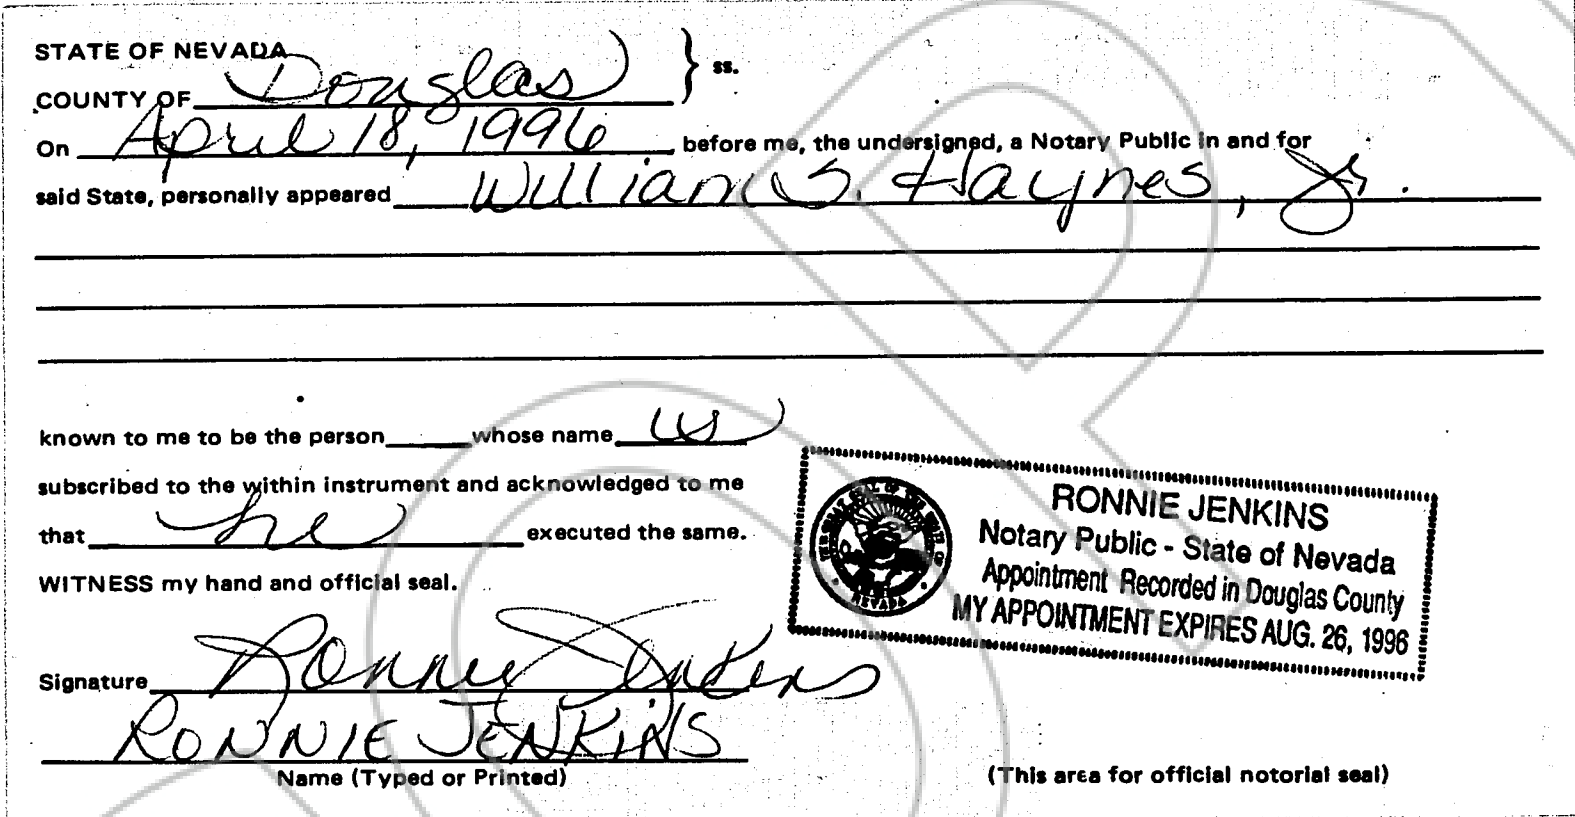 STATE OF NEVADA } ss.
COUNTY OF Douglas
On April 18, 1996 before me, the undersigned, a Notary Public in and for
said State, personally appeared William S. Haynes, Jr.
known to me to be the person whose name is
subscribed to the within instrument and acknowledged to me
that he executed the same.
WITNESS my hand and official seal.
Signature Ronnie Jenkins
RONNIE JENKINS
Name (Typed or Printed)
THE GREAT SEAL OF THE STATE OF
NEVADA
RONNIE JENKINS
Notary Public - State of Nevada
Appointment Recorded in Douglas County
MY APPOINTMENT EXPIRES AUG. 26, 1996
(This area for official notorial seal)